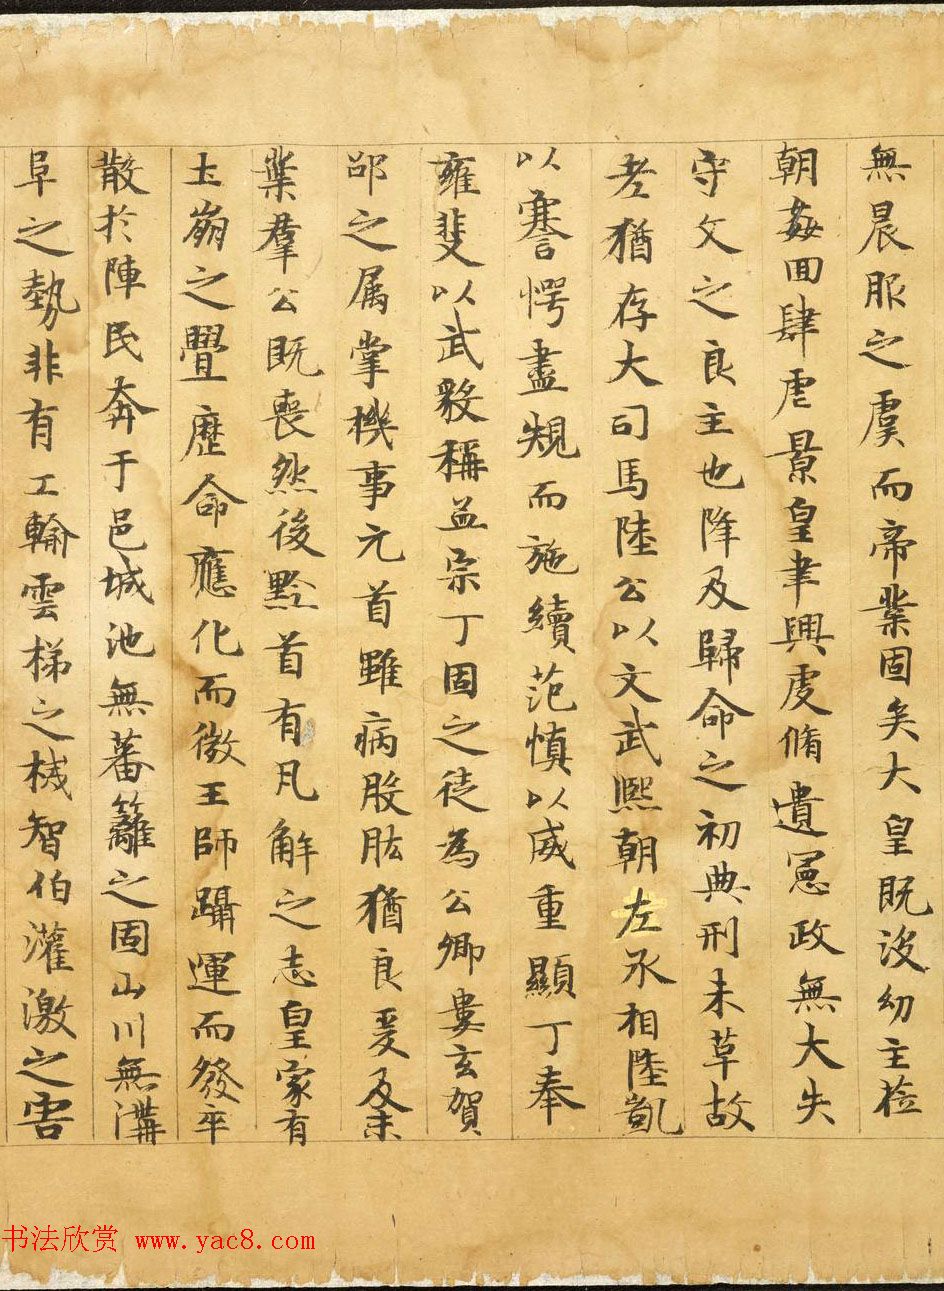 無晨服之虞而帝業固矣大皇既没幼主莅
朝姦回肆虐景皇聿興虔脩遺憲政無大失
守文之良主也降及歸命之初典刑未草故
老猶存大司馬陸公以文武熙朝左丞相陸凱
以謇愕盡規而施續范慎以威重顯丁奉
雍斐以武毅稱孟宗丁固之徒為公卿婁玄賀
邵之属掌機事元首雖病股肱猶良爰及末
葉羣公既喪然後黔首有凡解之志皇家有
土崩之舋歷命應化而微王師躡運而發卒
散於陣民奔于邑城池無蕃籬之固山川無溝
阜之勢非有工輸雲梯之械智伯灌激之害
书法欣赏 www.yac8.com